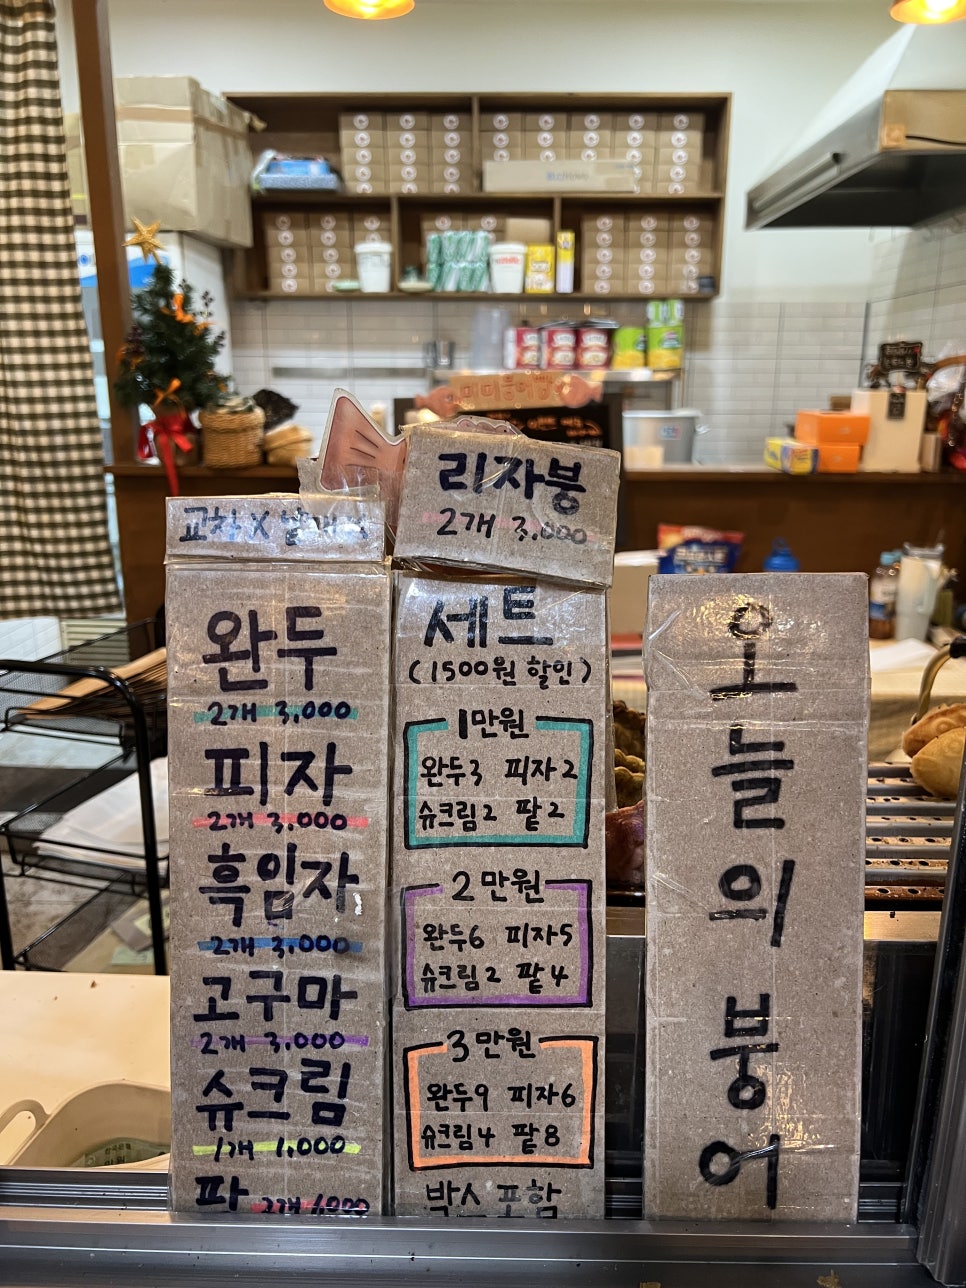 리자붕
2개 3,000
완두
2개 3,000
피자
2개 3,000
흑임자
2개 3,000
고구마
2개 3,000
슈크림
1개 1,000
세트
(1500원 할인)
1만원
완두3 피자2
슈크림2 팥2
2만원
완두6 피자5
슈크림2 팥4
3만원
완두9 피자6
슈크림4 팥8
박스포함
오늘의 붕어